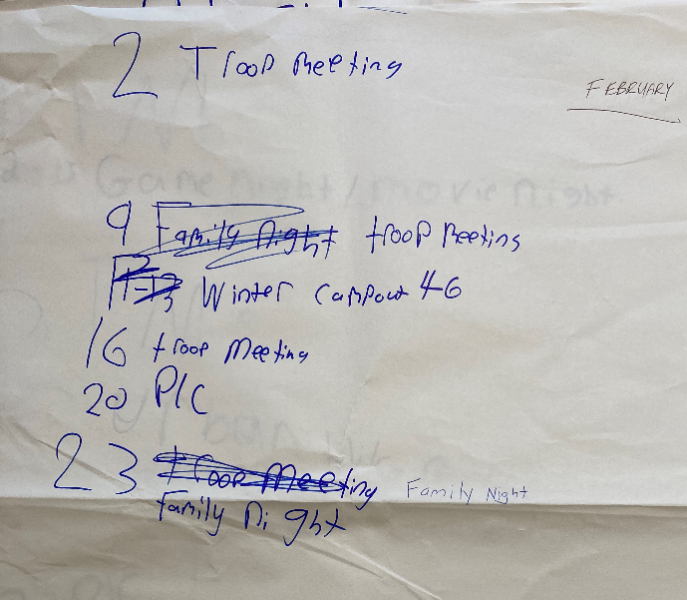 2 Troop Meeting
FEBRUARY
Game Night / movie night
9 Family Night troop Meeting
11-13 Winter Campout 4-6
16 troop Meeting
20 PLC
23 troop Meeting Family Night
Family Night